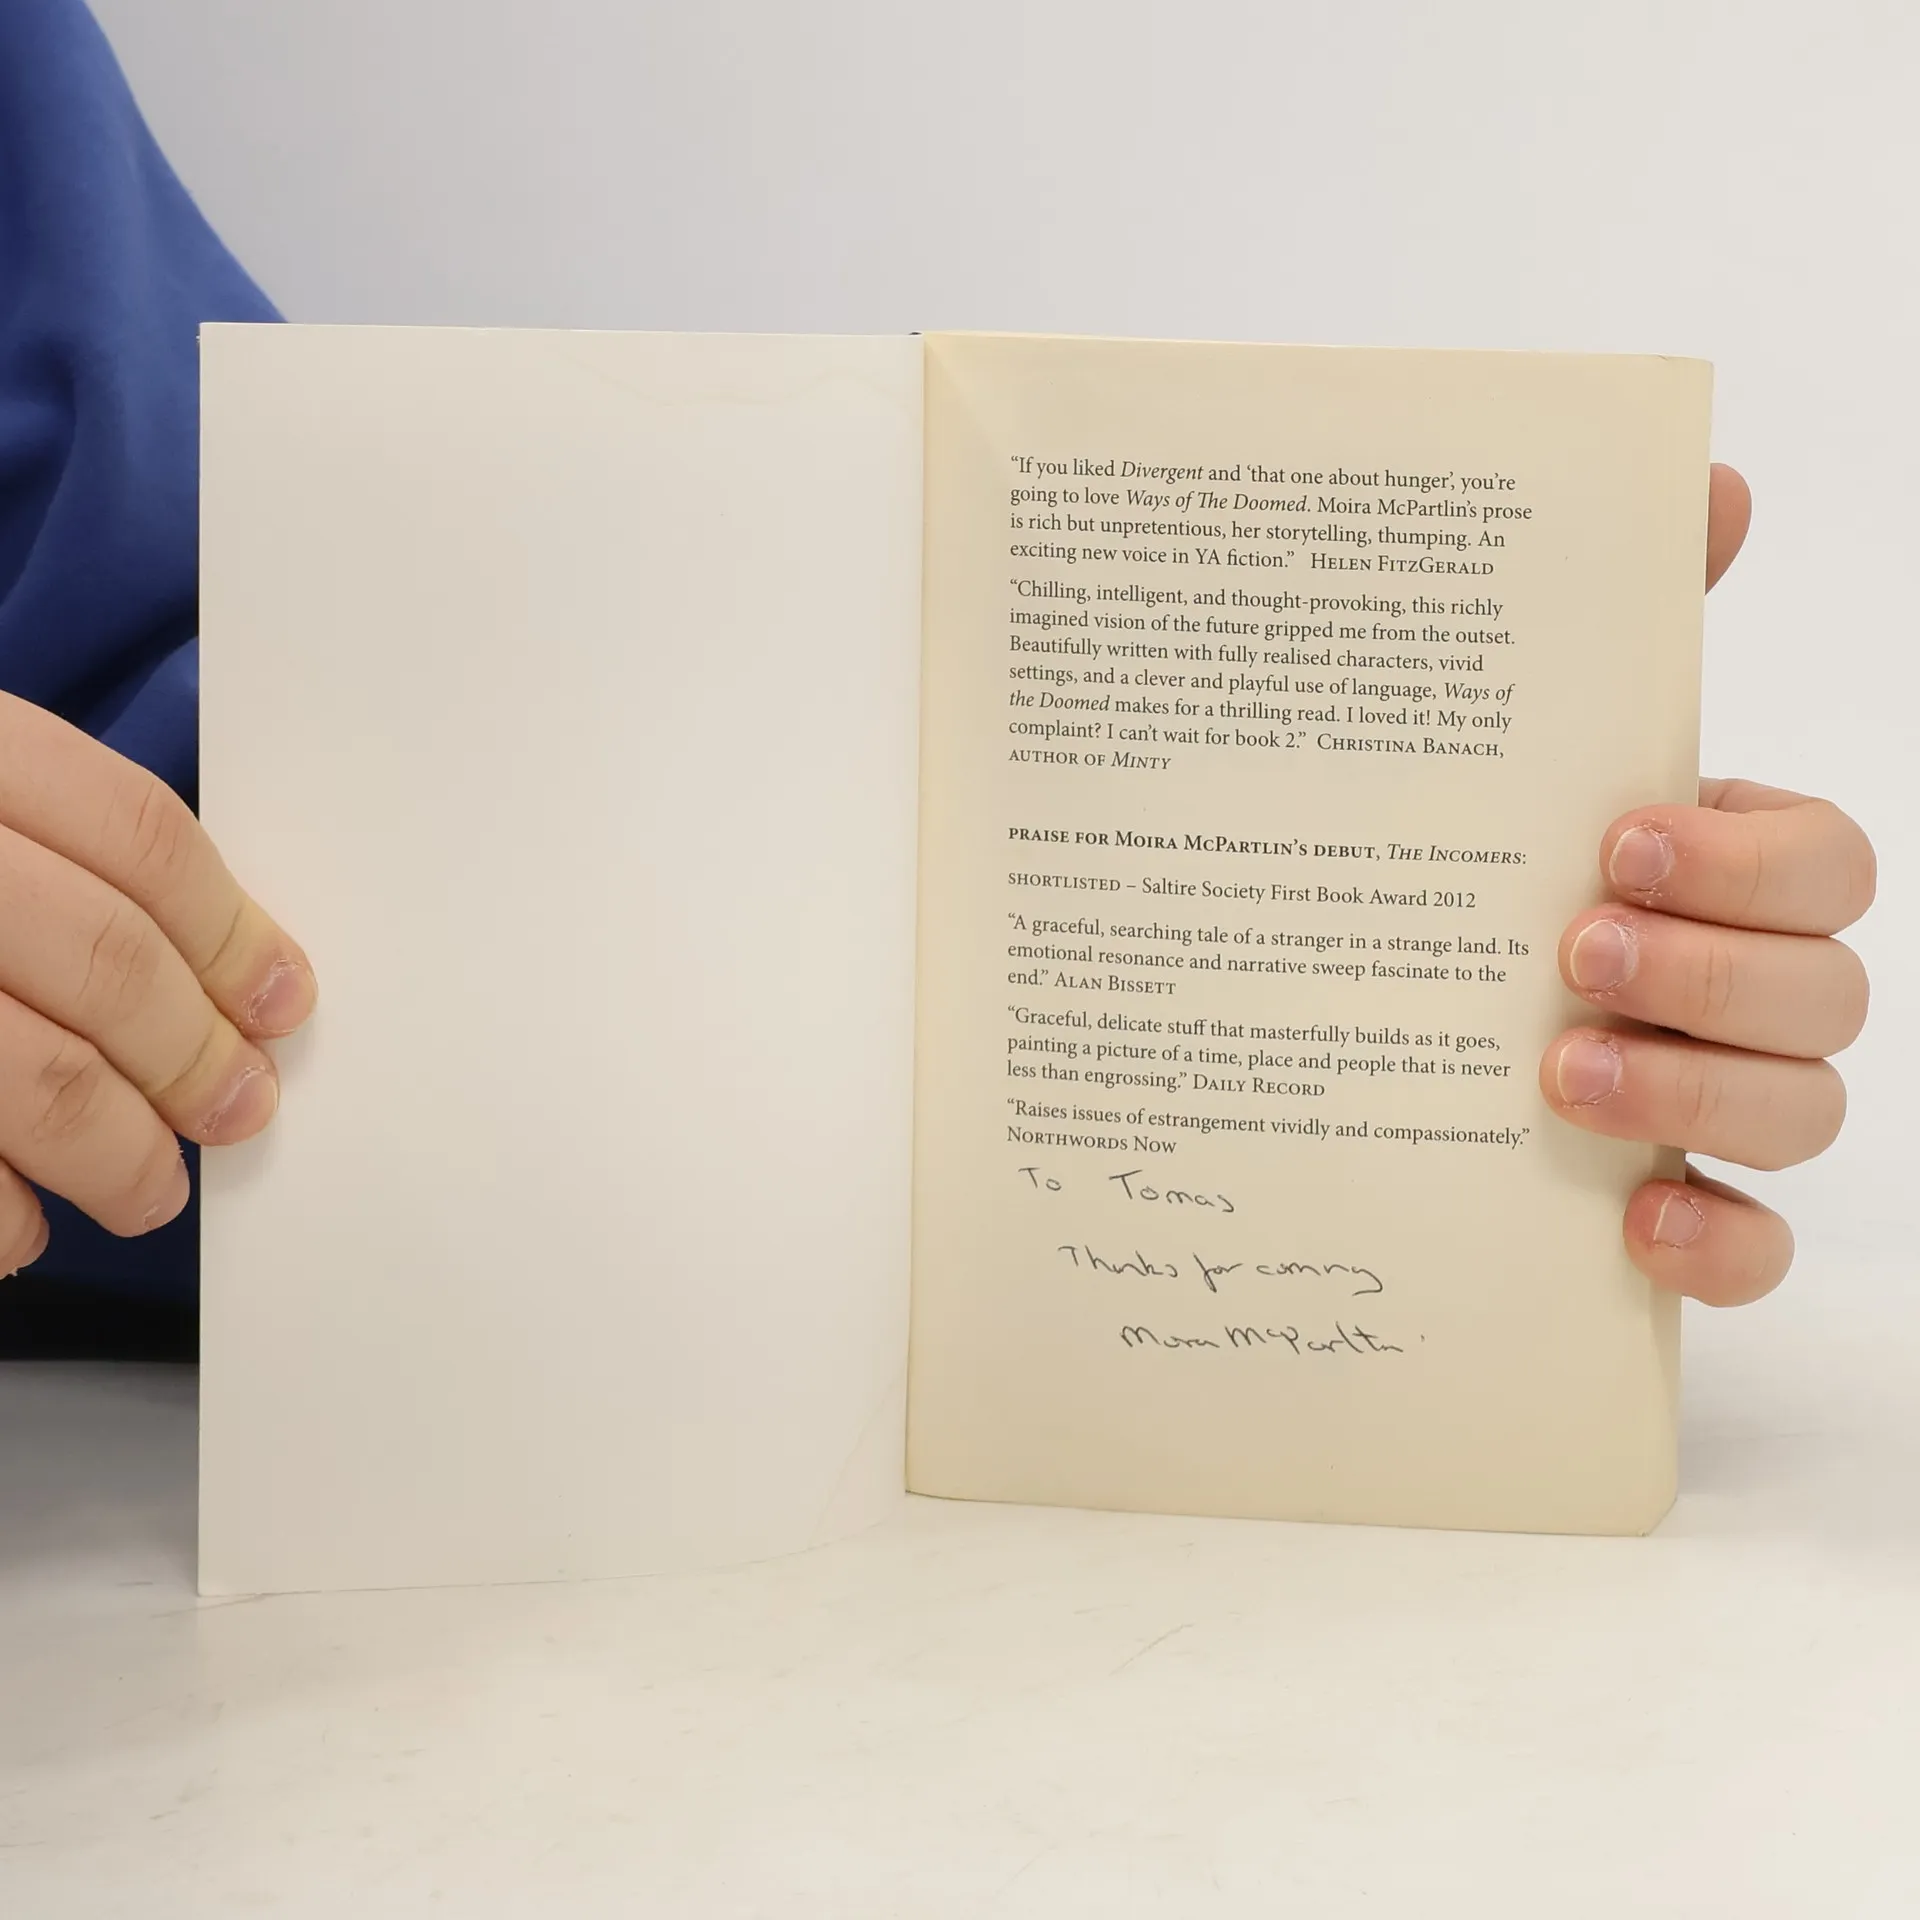 “If you liked Divergent and ‘that one about hunger’, you’re
going to love Ways of The Doomed. Moira McPartlin’s prose
is rich but unpretentious, her storytelling, thumping. An
exciting new voice in YA fiction.” HELEN FITZGERALD
“Chilling, intelligent, and thought-provoking, this richly
imagined vision of the future gripped me from the outset.
Beautifully written with fully realised characters, vivid
settings, and a clever and playful use of language, Ways of
the Doomed makes for a thrilling read. I loved it! My only
complaint? I can’t wait for book 2.” CHRISTINA BANACH,
AUTHOR OF MINTY
PRAISE FOR MOIRA MCPARTLIN’S DEBUT, THE INCOMERS:
SHORTLISTED – Saltire Society First Book Award 2012
“A graceful, searching tale of a stranger in a strange land. Its
emotional resonance and narrative sweep fascinate to the
end.” ALAN BISSETT
“Graceful, delicate stuff that masterfully builds as it goes,
painting a picture of a time, place and people that is never
less than engrossing.” DAILY RECORD
“Raises issues of estrangement vividly and compassionately.”
NORTHWORDS NOW
To Tomas
Thanks for coming
Moira McPartlin